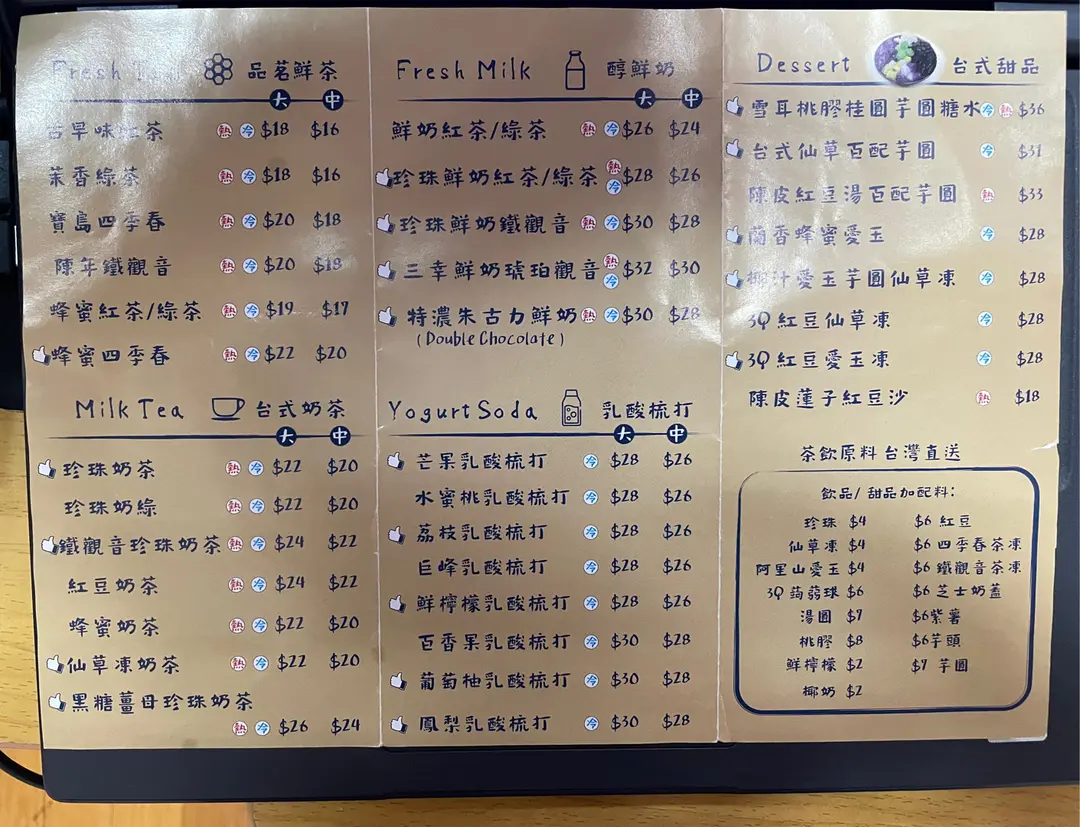 Fresh Tea 品茗鮮茶
大 中
古早味紅茶 熱 冷 $18 $16
茉香綠茶 熱 冷 $18 $16
寶島四季春 熱 冷 $20 $18
陳年鐵觀音 熱 冷 $20 $18
蜂蜜紅茶/綠茶 熱 冷 $19 $17
蜂蜜四季春 熱 冷 $22 $20
Milk Tea 台式奶茶
大 中
珍珠奶茶 熱 冷 $22 $20
珍珠奶綠 熱 冷 $22 $20
鐵觀音珍珠奶茶 熱 冷 $24 $22
紅豆奶茶 熱 冷 $24 $22
蜂蜜奶茶 熱 冷 $22 $20
仙草凍奶茶 熱 冷 $22 $20
黑糖薑母珍珠奶茶
熱 冷 $26 $24
Fresh Milk 醇鮮奶
大 中
鮮奶紅茶/綠茶 熱 冷 $26 $24
珍珠鮮奶紅茶/綠茶 熱 冷 $28 $26
珍珠鮮奶鐵觀音 熱 冷 $30 $28
三幸鮮奶琥珀觀音 熱 冷 $32 $30
特濃朱古力鮮奶 熱 冷 $30 $28
(Double Chocolate)
Yogurt Soda 乳酸梳打
大 中
芒果乳酸梳打 冷 $28 $26
水蜜桃乳酸梳打 冷 $28 $26
荔枝乳酸梳打 冷 $28 $26
巨峰乳酸梳打 冷 $28 $26
鮮檸檬乳酸梳打 冷 $28 $26
百香果乳酸梳打 冷 $30 $28
葡萄柚乳酸梳打 冷 $30 $28
鳳梨乳酸梳打 冷 $30 $28
Dessert 台式甜品
雪耳桃膠桂圓芋圓糖水 冷 熱 $36
台式仙草百配芋圓 冷 $31
陳皮紅豆湯百配芋圓 熱 $33
蘭香蜂蜜愛玉 冷 $28
椰汁愛玉芋圓仙草凍 冷 $28
3Q紅豆仙草凍 冷 $28
3Q紅豆愛玉凍 冷 $28
陳皮蓮子紅豆沙 熱 $18
茶飲原料台灣直送
飲品/甜品加配料:
珍珠 $4 $6 紅豆
仙草凍 $4 $6 四季春茶凍
阿里山愛玉 $4 $6 鐵觀音茶凍
3Q蒟蒻球 $6 $6 芝士奶蓋
湯圓 $7 $6紫薯
桃膠 $8 $6芋頭
鮮檸檬 $2 $7 芋圓
椰奶 $2